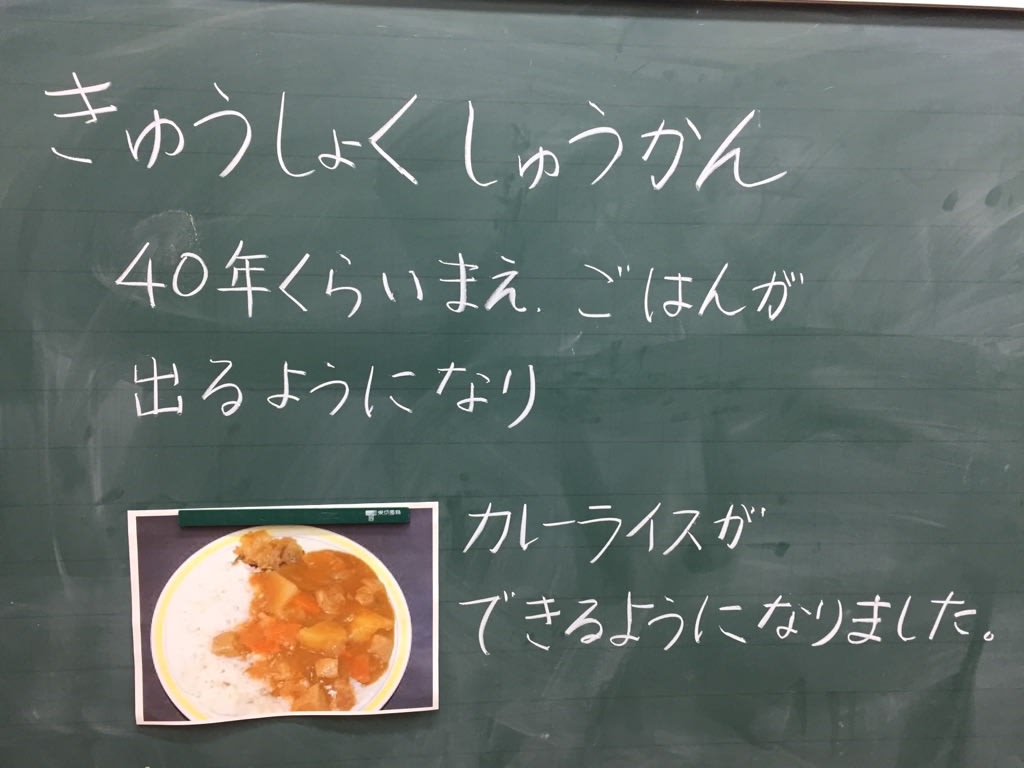 きゅうしょくしゅうかん
40年くらいまえ、ごはんが
出るようになり
カレーライスが
できるようになりました。